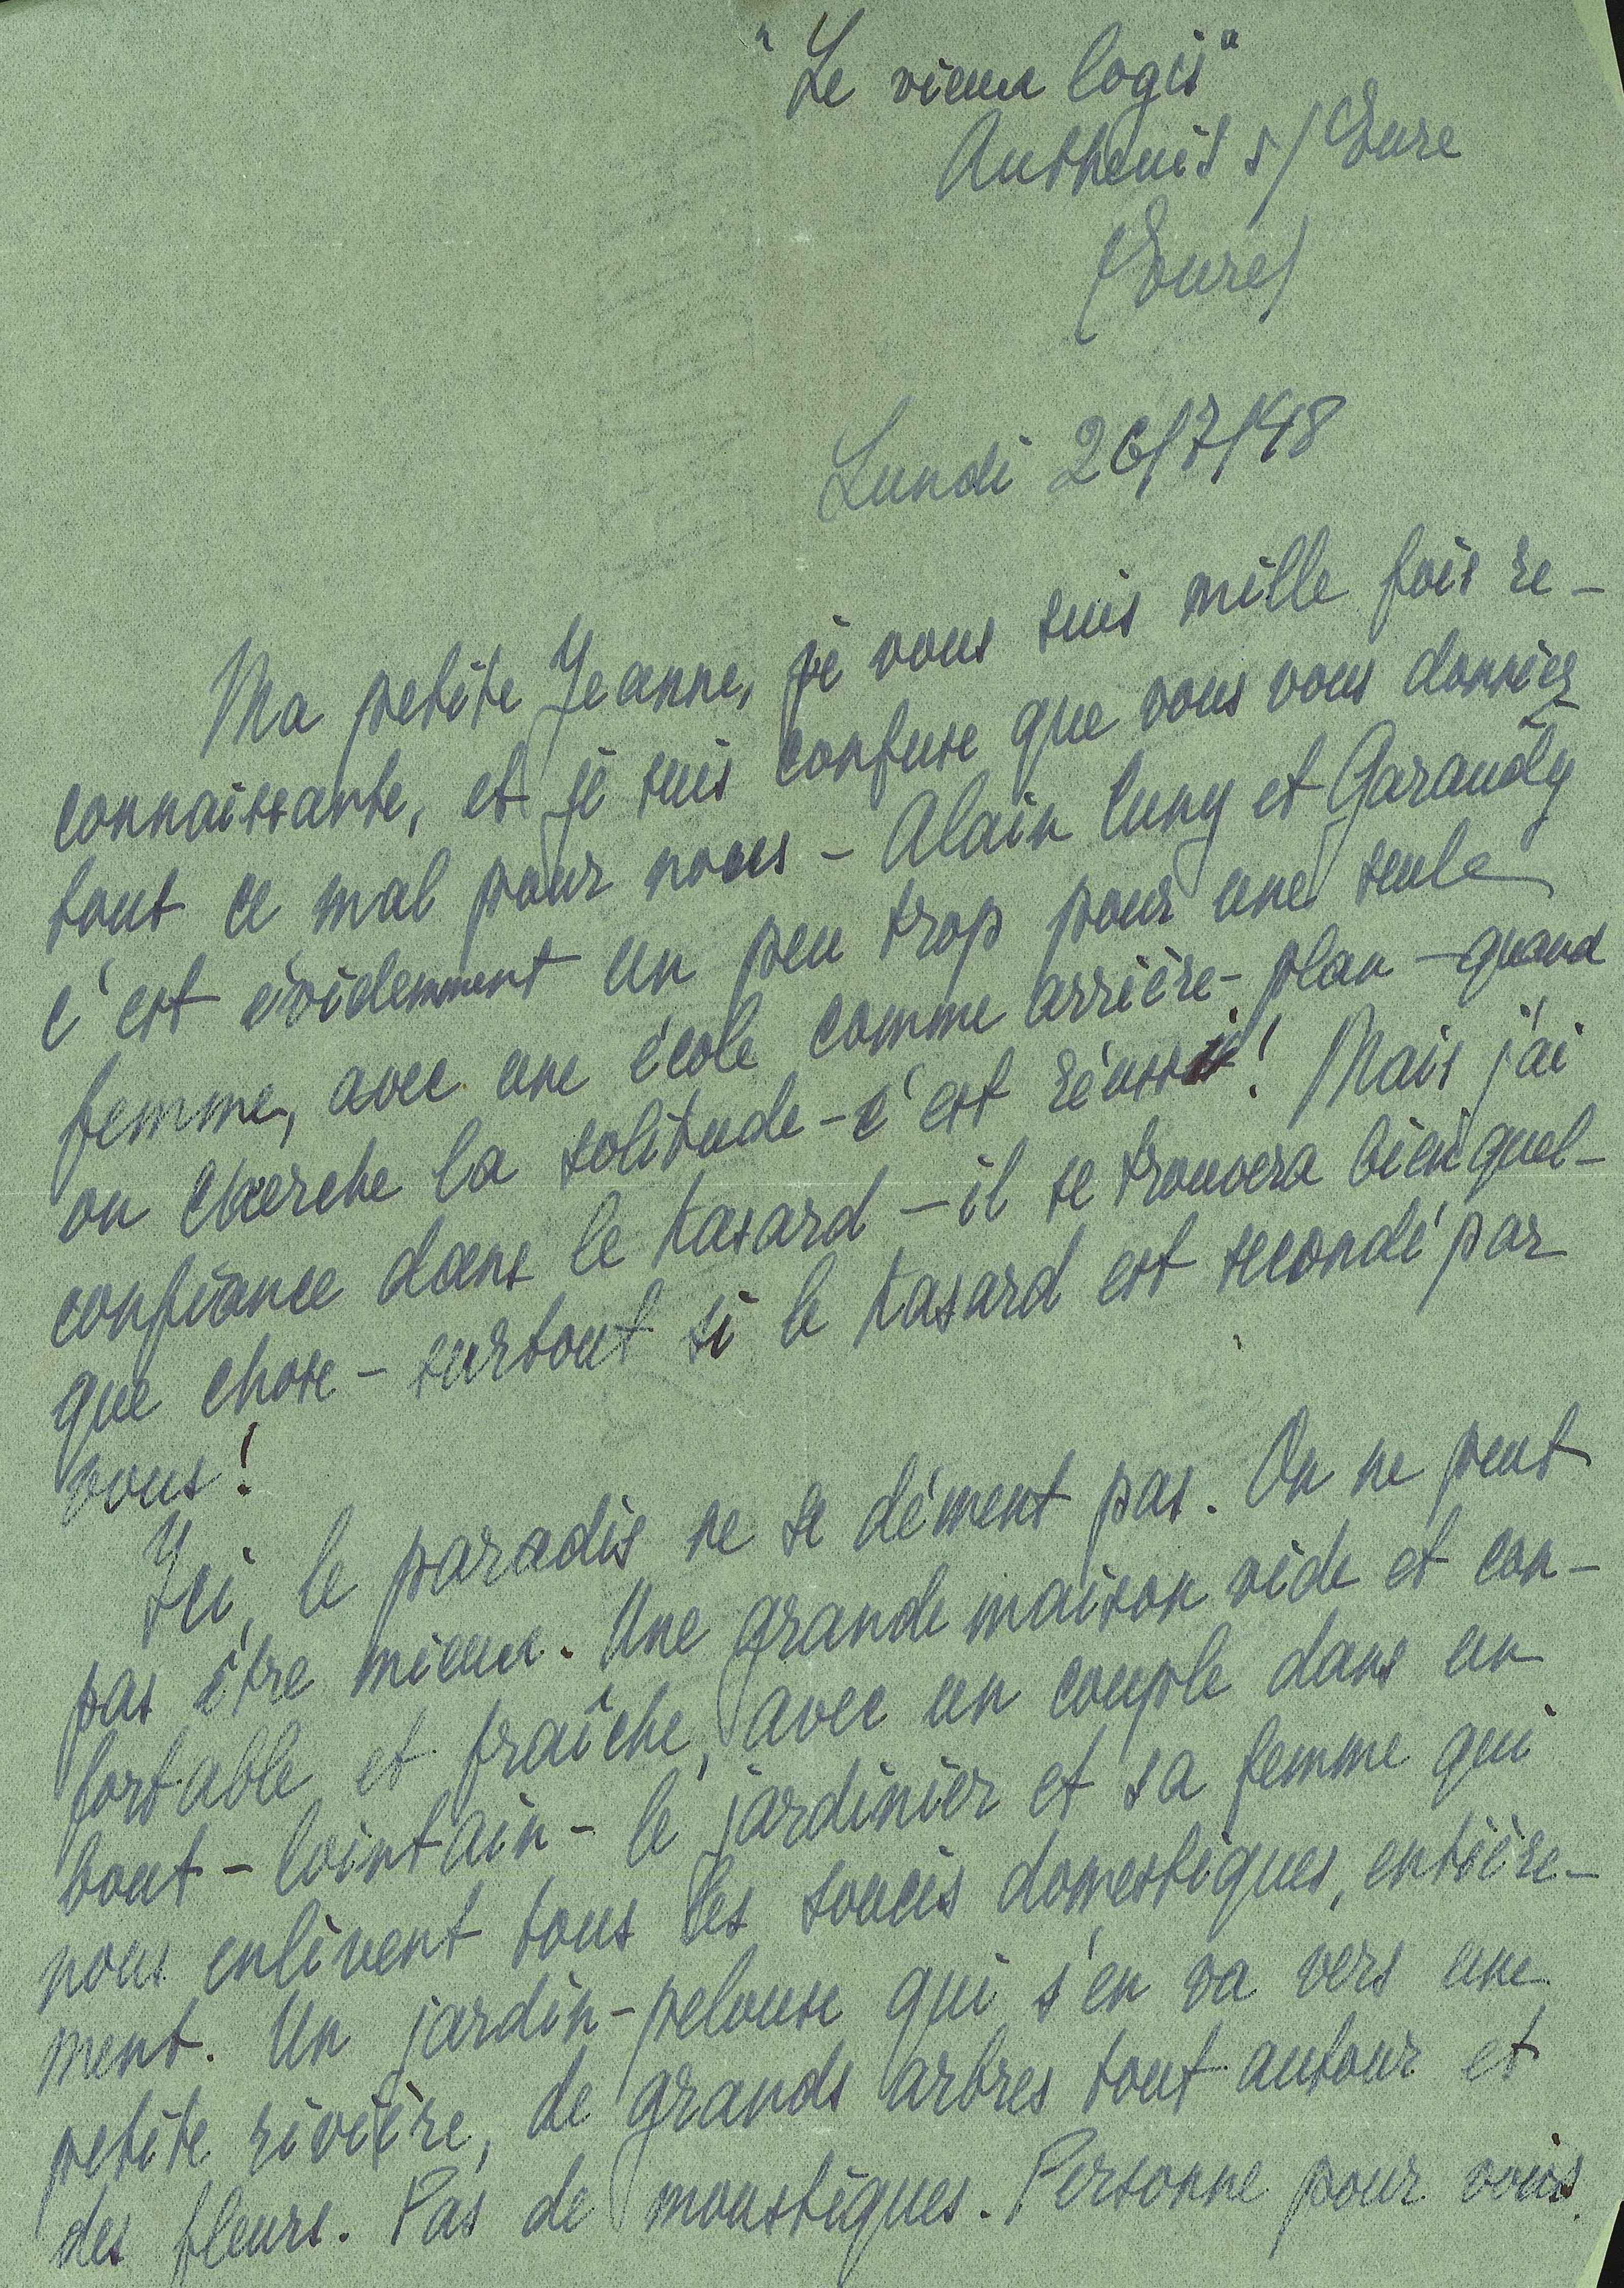 "Le vieux logis"
Autheuil s/Eure
(Eure)
Lundi 26/7/48
Ma petite Jeanne, je vous suis mille fois re-
connaissante, et je suis confuse que vous vous donniez
tout ce mal pour nous - Alain Cuny et Garaudy
c'est évidemment un peu trop pour une seule
femme, avec une école comme arrière-plan - quand
on cherche la solitude - c'est réussi! Mais j'ai
confiance dans le hasard - il se trouvera bien quel-
que chose - surtout si le hasard est secondé par
vous!
Ici, le paradis ne se dément pas. On ne peut
pas être mieux. Une grande maison vide et con-
fortable et fraîche, avec un couple dans un
bout - lointain - le jardinier et sa femme qui
nous enlèvent tous les soucis domestiques, entière-
ment. Un jardin-pelouse qui s'en va vers une
petite rivière, de grands arbres tout autour et
des fleurs. Pas de moustiques. Personne pour vous